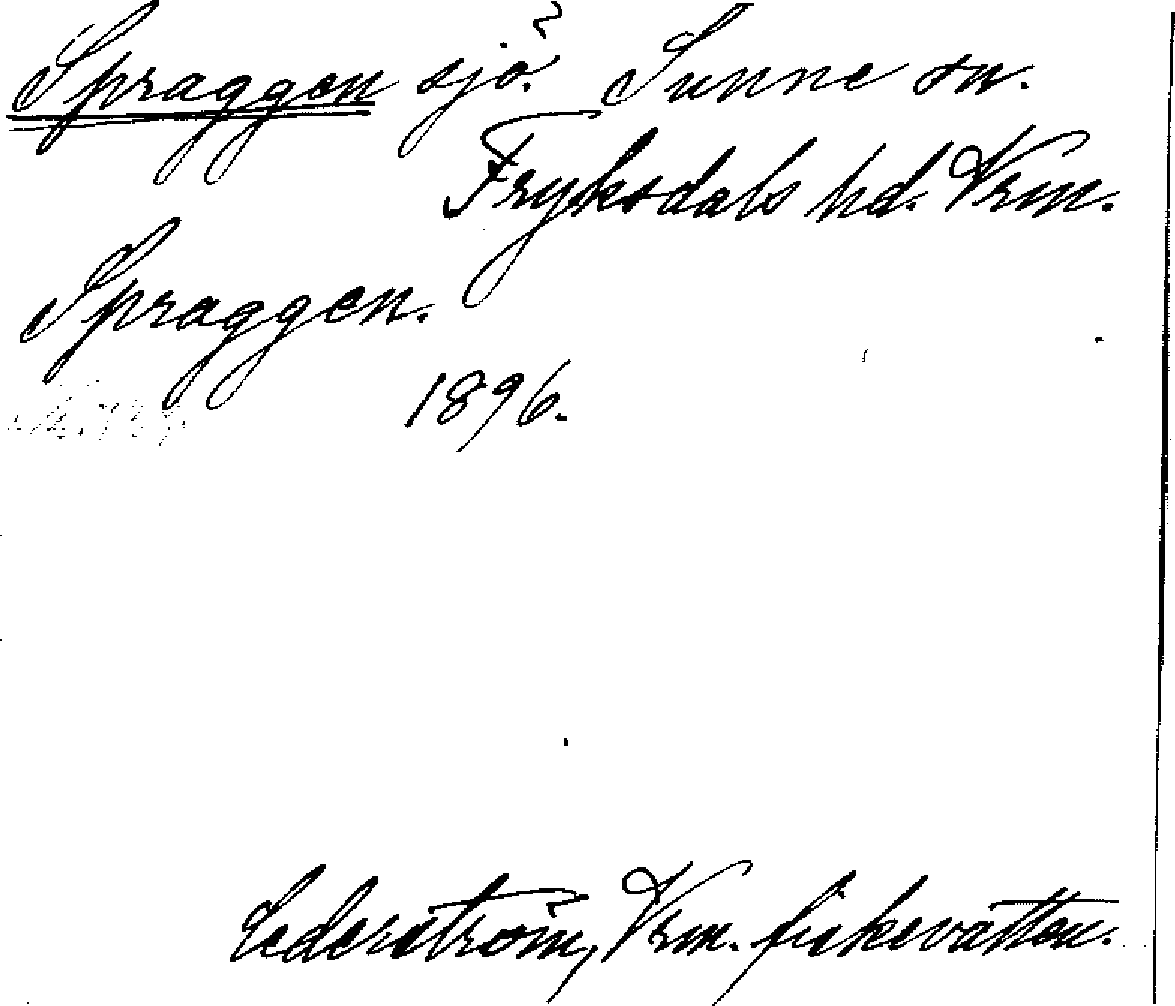 Spraggen sjö. Sunne sn.
Fryksdals hd. Vrm.
Spraggen.
1896.
Cederström, Vrm. fiskevatten.